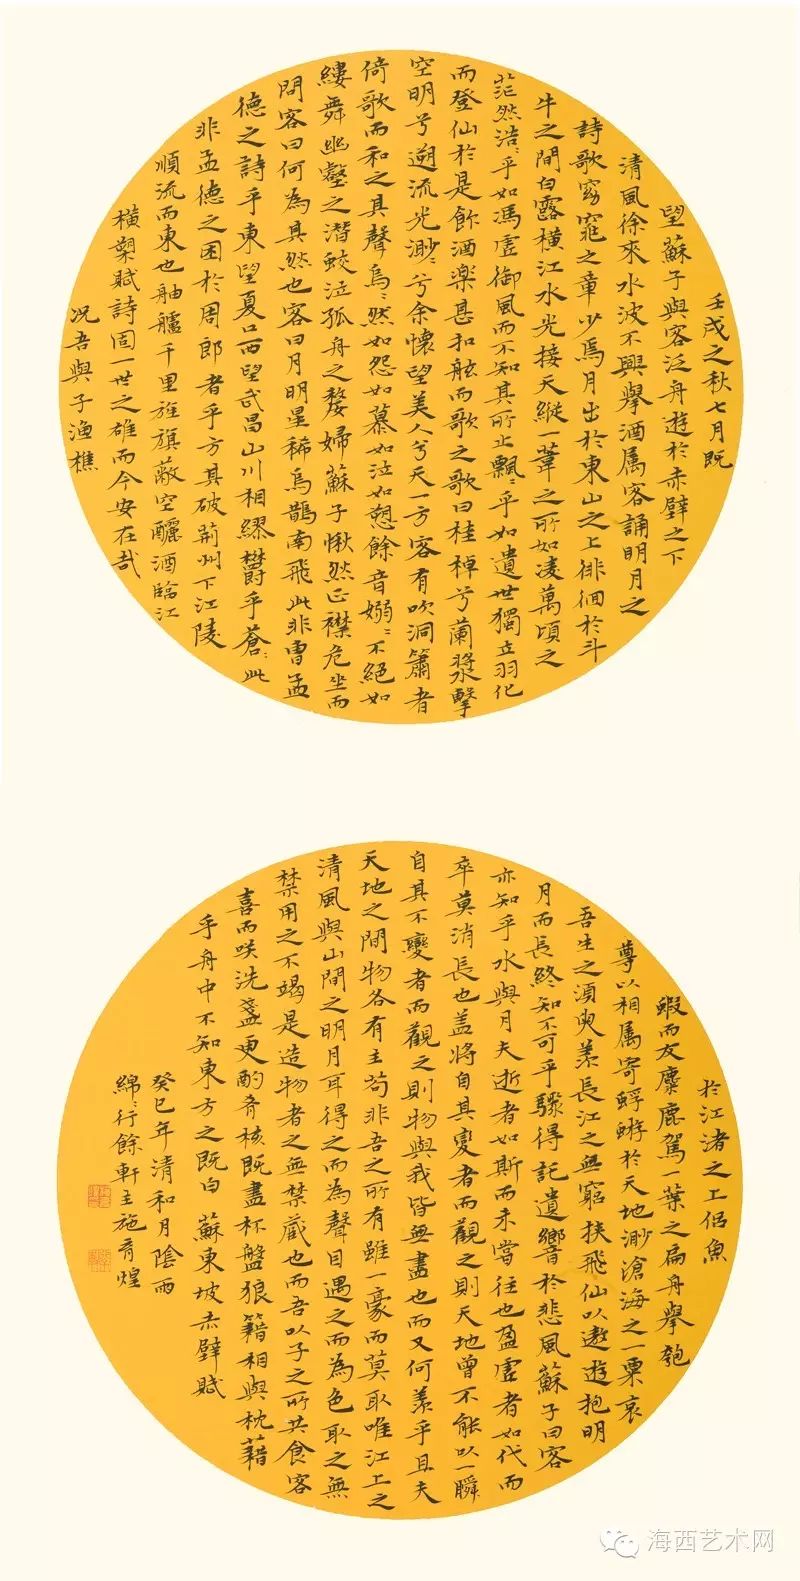 壬戌之秋七月既
望蘇子與客泛舟遊於赤壁之下
清風徐來水波不興舉酒属客誦明月之
詩歌窈窕之章少焉月出於東山之上徘徊於斗
牛之間白露橫江水光接天縱一葦之所如凌萬頃之
茫然浩〻乎如馮虛御風而不知其所止飄〻乎如遺世獨立羽化
而登仙於是飲酒樂甚扣舷而歌之歌曰桂棹兮蘭槳擊
空明兮遡流光渺〻兮余懷望美人兮天一方客有吹洞簫者
倚歌而和之其聲烏〻然如怨如慕如泣如愬餘音嫋〻不絕如
縷舞幽壑之潛蛟泣孤舟之嫠婦蘇子愀然正襟危坐而
問客曰何為其然也客曰月明星稀烏鵲南飛此非曹孟
德之詩乎東望夏口西望武昌山川相繆欝乎蒼〻此
非孟德之困於周郎者乎方其破荊州下江陵
順流而東也舳艫千里旌旗蔽空釃酒臨江
橫槊賦詩固一世之雄而今安在哉
況吾與子漁樵
於江渚之上侶魚
蝦而友麋鹿駕一葉之扁舟舉匏
尊以相属寄蜉蝣於天地渺滄海之一粟哀
吾生之須臾羨長江之無窮挾飛仙以遨遊抱明
月而長終知不可乎驟得託遺響於悲風蘇子曰客
亦知乎水與月夫逝者如斯而未嘗往也盈虛者如代而
卒莫消長也盖將自其變者而觀之則天地曾不能以一瞬
自其不變者而觀之則物與我皆無盡也而又何羨乎且夫
天地之間物各有主苟非吾之所有雖一豪而莫取唯江上之
清風與山間之明月耳得之而為聲目遇之而為色取之無
禁用之不竭是造物者之無禁藏也而吾以子之所共食客
喜而咲洗盞更酌肴核既盡杯盤狼籍相與枕藉
乎舟中不知東方之既白 蘇東坡赤壁賦
癸巳年清和月陰雨
綿〻行餘軒主施育煌
海西艺术网